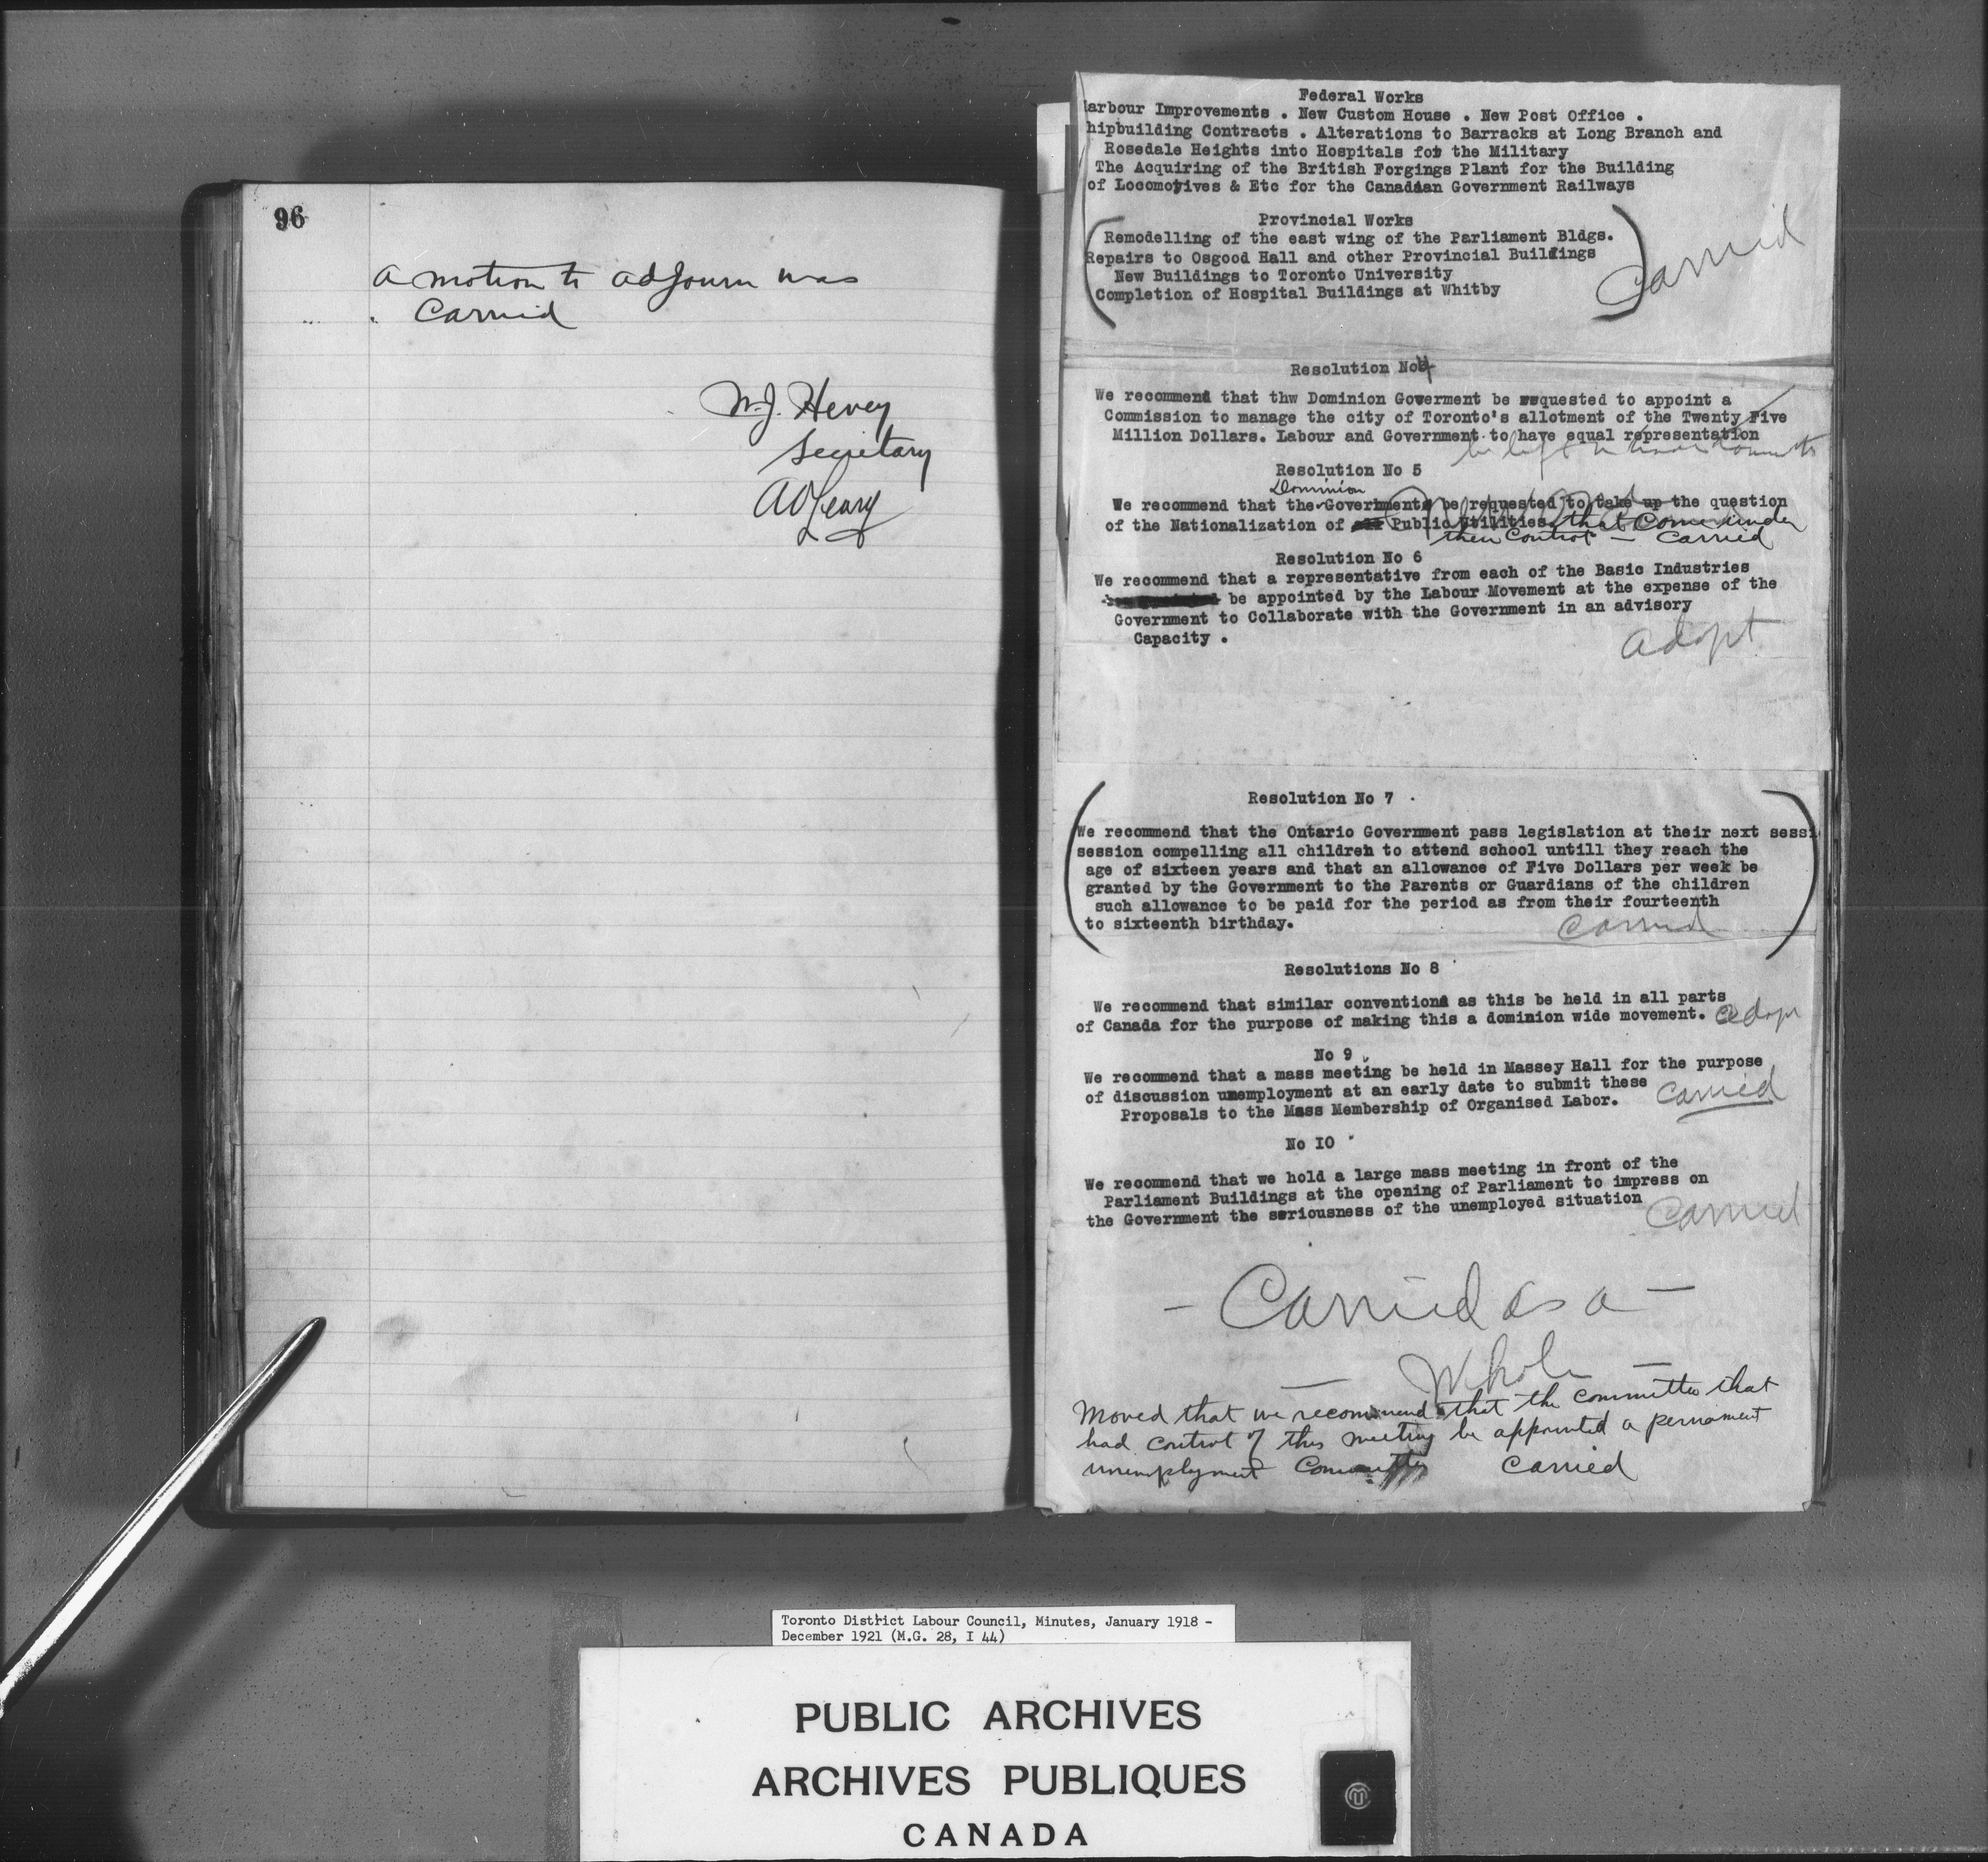 96
a motion to adjourn was
Carried
W.J. Hevey
Secretary
A O'Leary
Federal Works
arbour Improvements . New Custom House . New Post Office .
hipbuilding Contracts . Alterations to Barracks at Long Branch and
Rosedale Heights into Hospitals for the Military
The Acquiring of the British Forgings Plant for the Building
of Locomotives & Etc for the Canadian Government Railways
Provincial Works
Remodelling of the east wing of the Parliament Bldgs.
Repairs to Osgood Hall and other Provincial Buildings
New Buildings to Toronto University
Completion of Hospital Buildings at Whitby
Carried
Resolution No 4
We recommend that thw Dominion Goverment be requested to appoint a
Commission to manage the city of Toronto's allotment of the Twenty Five
Million Dollars. Labour and Government to have equal representation
be left to
Resolution No 5
Dominion
We recommend that the Government be requested to take up the question
of the Nationalization of Public Utilities that come under
their control – Carried
Resolution No 6
We recommend that a representative from each of the Basic Industries
be appointed by the Labour Movement at the expense of the
Government to Collaborate with the Government in an advisory
Capacity .
adopt
Resolution No 7 .
We recommend that the Ontario Government pass legislation at their next sessi
session compelling all children to attend school untill they reach the
age of sixteen years and that an allowance of Five Dollars per week be
granted by the Government to the Parents or Guardians of the children
such allowance to be paid for the period as from their fourteenth
to sixteenth birthday.
Carried
Resolutions No 8
We recommend that similar conventions as this be held in all parts
of Canada for the purpose of making this a dominion wide movement. adopt
No 9
We recommend that a mass meeting be held in Massey Hall for the purpose
of discussion unemployment at an early date to submit these
Proposals to the Mass Membership of Organised Labor.
Carried
No IO
We recommend that we hold a large mass meeting in front of the
Parliament Buildings at the opening of Parliament to impress on
the Government the seriousness of the unemployed situation
Carried
– Carried as a –
– Whole –
Moved that we recommend that the committee that
had control of this meeting be appointed a permament
unemployment Committee Carried
Toronto District Labour Council, Minutes, January 1918 -
December 1921 (M.G. 28, I 44)
PUBLIC ARCHIVES
ARCHIVES PUBLIQUES
CANADA